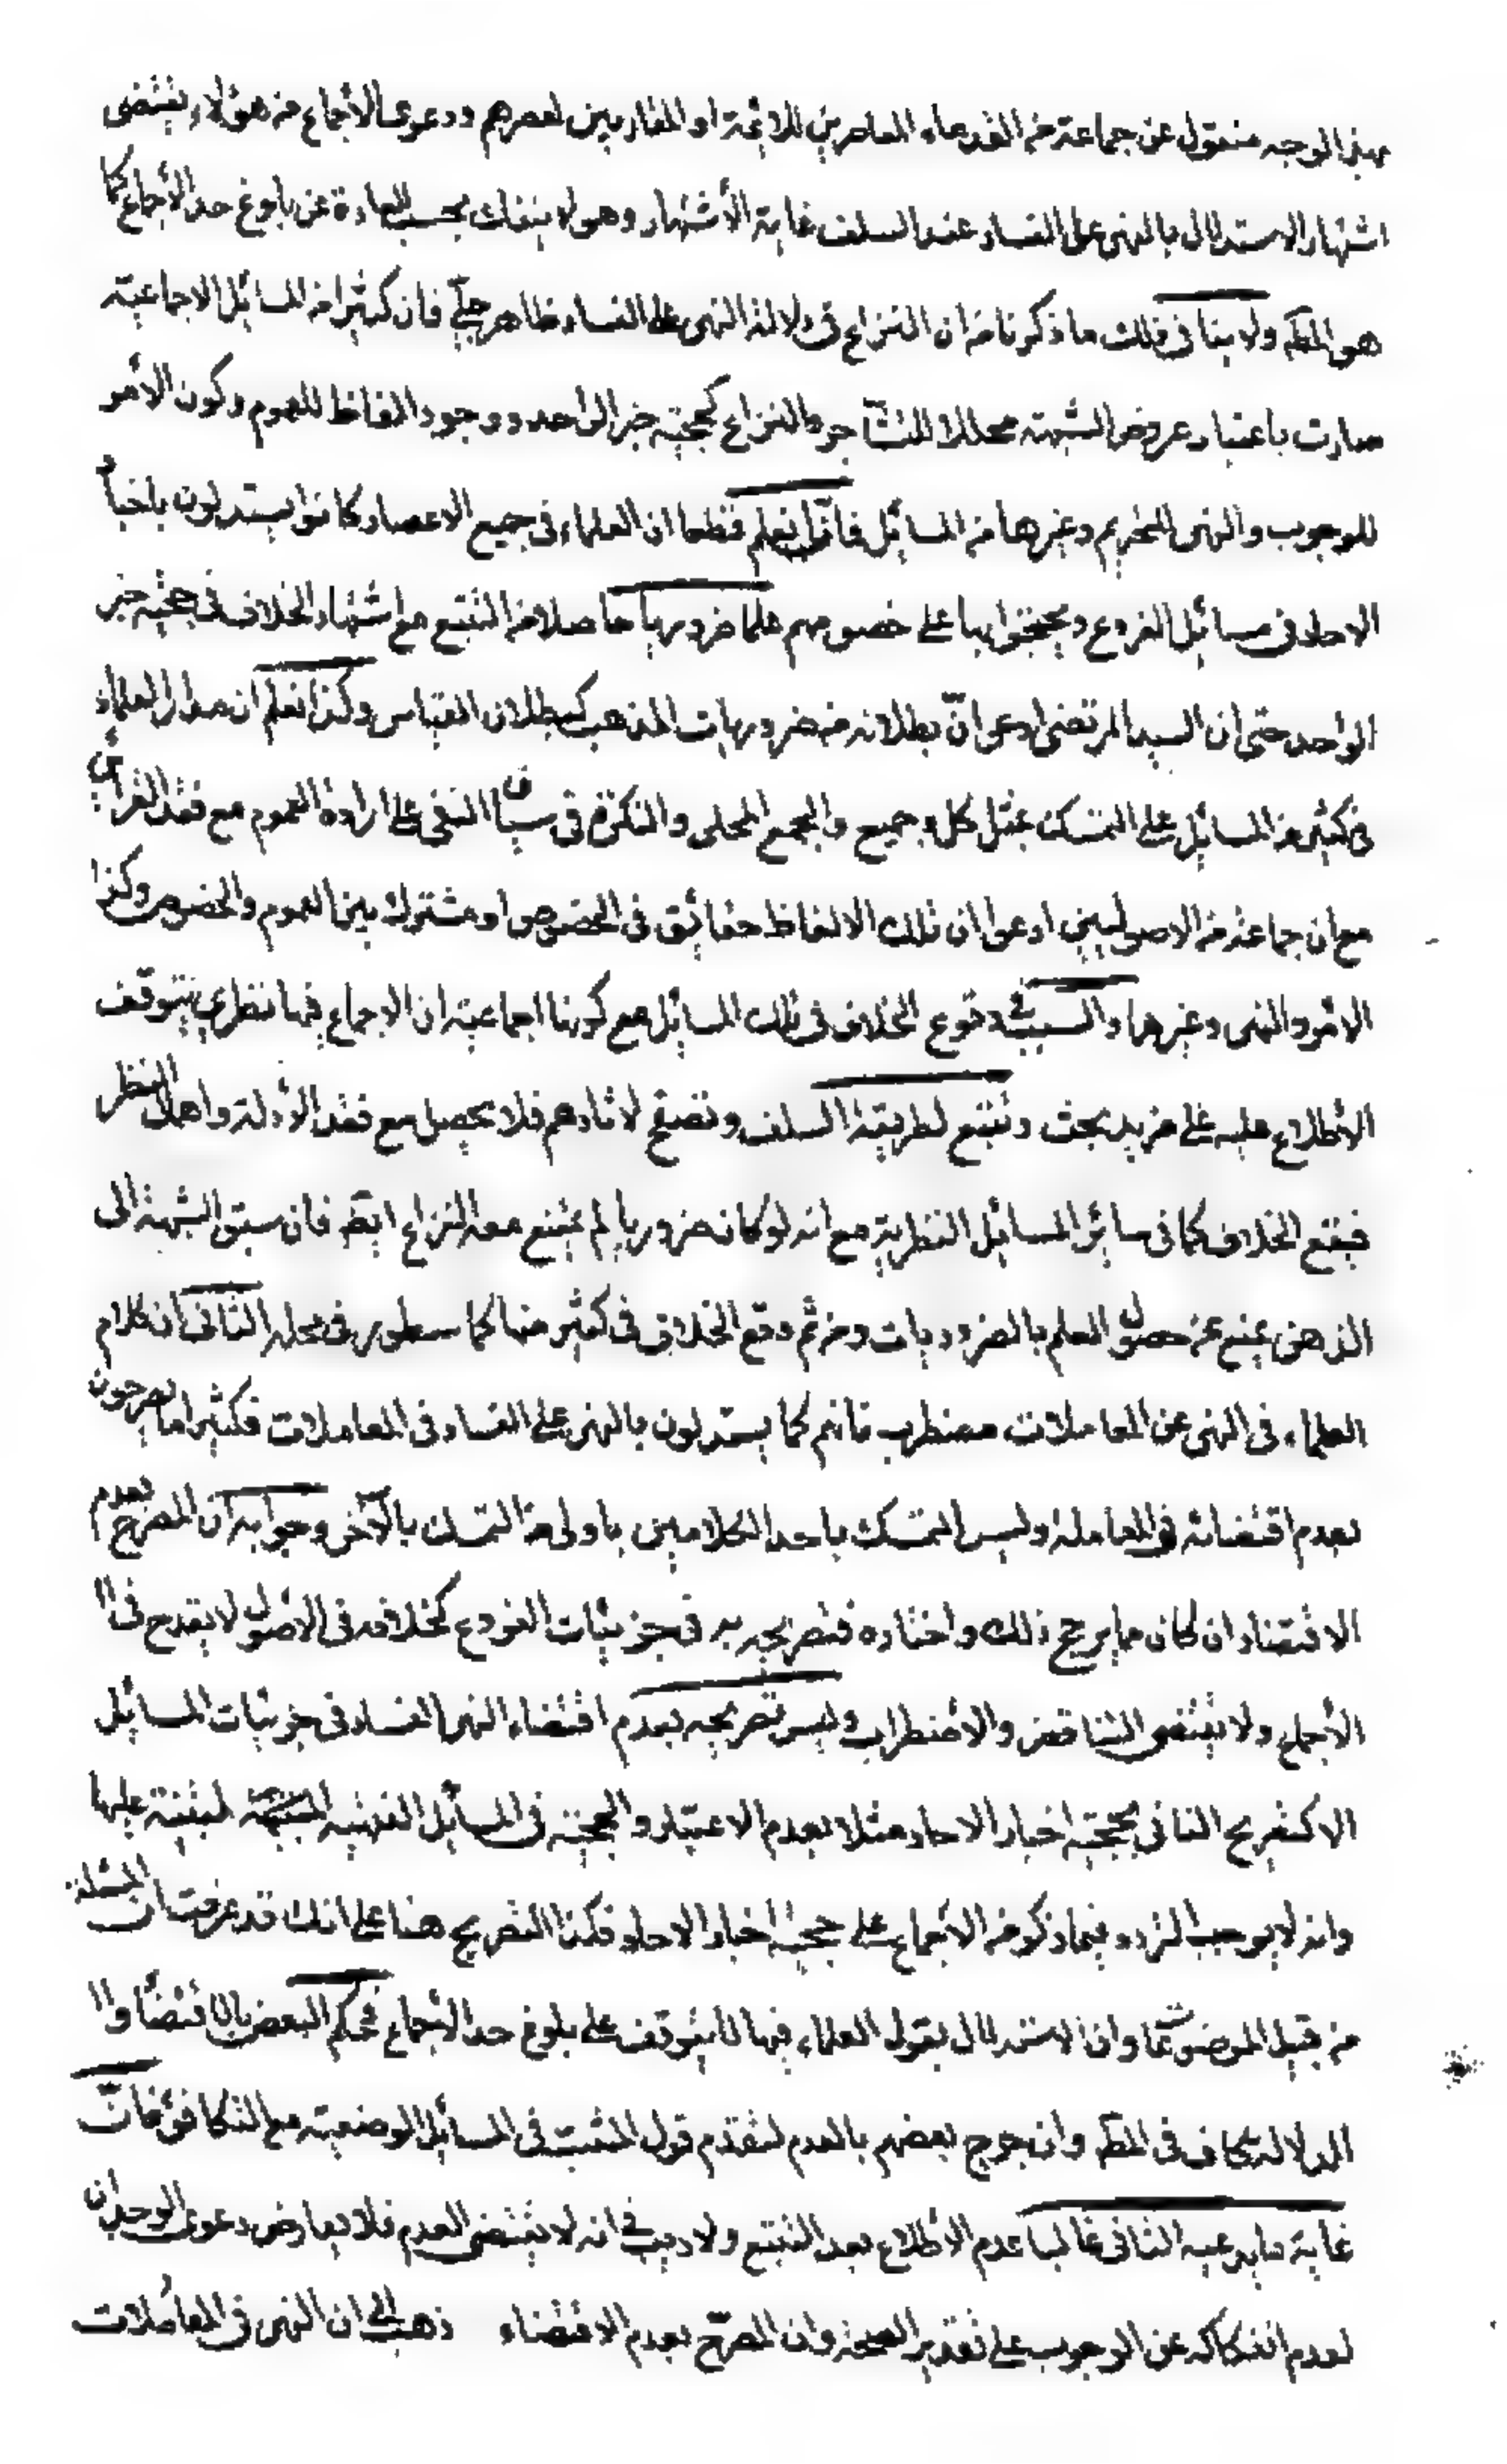 بهذا الوجه منقول عن جماعة من القدماء المعاصرين للائمة او المقاربين لعصرهم ودعوى الاجماع من هؤلاء يقتضى
اشتهار الاستدلال بالنهى على الفساد عند السلف غاية الأشتهار وهو لا ينفك بحسب العادة عن بلوغ حد الأجماع كما
هو المط ولا ينافى ذلك ما ذكرنا من ان النزاع فى دلالة النهى على الفساد ظاهر جلىّ فان كثيرا من المسائل الاجماعية
صارت باعتبار عروض الشبهة محلا للتشاجر والنزاع كحجية خبر الواحد ووجود الفاظ للعموم وكون الأمر
للوجوب والنهى للتحريم وغيرها من المسائل فانّا نعلم قطعا ان العلماء فى جميع الاعصار كانوا يستدلون باخبا
الاحاد فى مسائل الفروع ويحتجوا بها على خصومهم علما ضروريا حاصلا من التتبع مع اشتهار الخلاف فى حجية خبر
الواحد حتى ان السيد المرتضى ادعى انّ بطلانه من ضروريات المذهب كبطلان القياس وكذا نعلم ان مدار العلماء
فى كثير من المسائل على التمسك بمثل كل وجميع والجمع المحلى والنكرة فى سياق النفى على ارادة العموم مع فقد القرائن
مع ان جماعة من الاصوليين ادعوا ان تلك الالفاظ حقائق فى الخصوص او مشترك بين العموم والخصوص وكذا
الامر والنهى وغيرها والسبب فى وقوع الخلاف فى تلك المسائل مع كونها اجماعية ان الاجماع فيها نظرى يتوقف
الأطلاع عليه على مزيد بحث وتتبع لطريقة السلف وتصفح لاثارهم فلا يحصل مع فقد الأدلة واهمال النظر
فيقع الخلاف كما فى سائر المسائل النظرية مع انه لو كان ضروريا لم يمتنع معه النزاع ايض فان سبق الشبهة الى
الذهن يمنع عن حصول العلم بالضروريات ومن ثم وقع الخلاف فى كثير منها كما سطور فى محله الثانى ان كلام
العلماء فى النهى عن المعاملات مضطرب فانهم كما يستدلون بالنهى على الفساد فى المعاملات فكثيرا ما يصرحون
بعدم اقتضائه فى المعاملة وليس التمسك باحد الكلامين باولى من التمسك بالآخر وجوابه ان المصرّح بعدم
الاقتضاء ان كان مما يرجح ذلك واختاره فتصريحه به فى جزئيات الفروع كخلافه فى الاصول لا يقدح فى ا
الأجماع ولا يقتضى التناقض والاضطراب وليس تصريحه بعدم اقتضاء النهى الفساد فى جزئيات المسائل
الا كتصريح النافى لحجية اخبار الاحاد مثلا بعدم الاعتبار والحجية فى المسائل الفقهيه لمبنية عليها
وانه لا يوجب التردد فيما ذكر من الأجماع على حجية اخبار الاحاد فكذا التصريح هنا على انك قد عرفت ان المسئلة
من قبيل الموضوعات وان الاستدلال بقول العلماء فيها لا يتوقف على بلوغ حد الأجماع فحكم البعض بالاقتضاء وا
الدلالة كاف فى المط وان جرح بعضهم بالعدم لتقدم قول المثبت فى المسائل الوضعية مع التكافؤ فانّ
غاية ما يدعيه النافى غالبا عدم الأطلاع بعد التتبع ولا ريب فى انه لا يقتضى العدم فلا يعارض دعوى الوجدان
لعدم انفكاكه عن الوجوب على تقدير الصحة وان المصرّح بعدم الاقتضاء ذهب الى ان النهى فى المعاملات